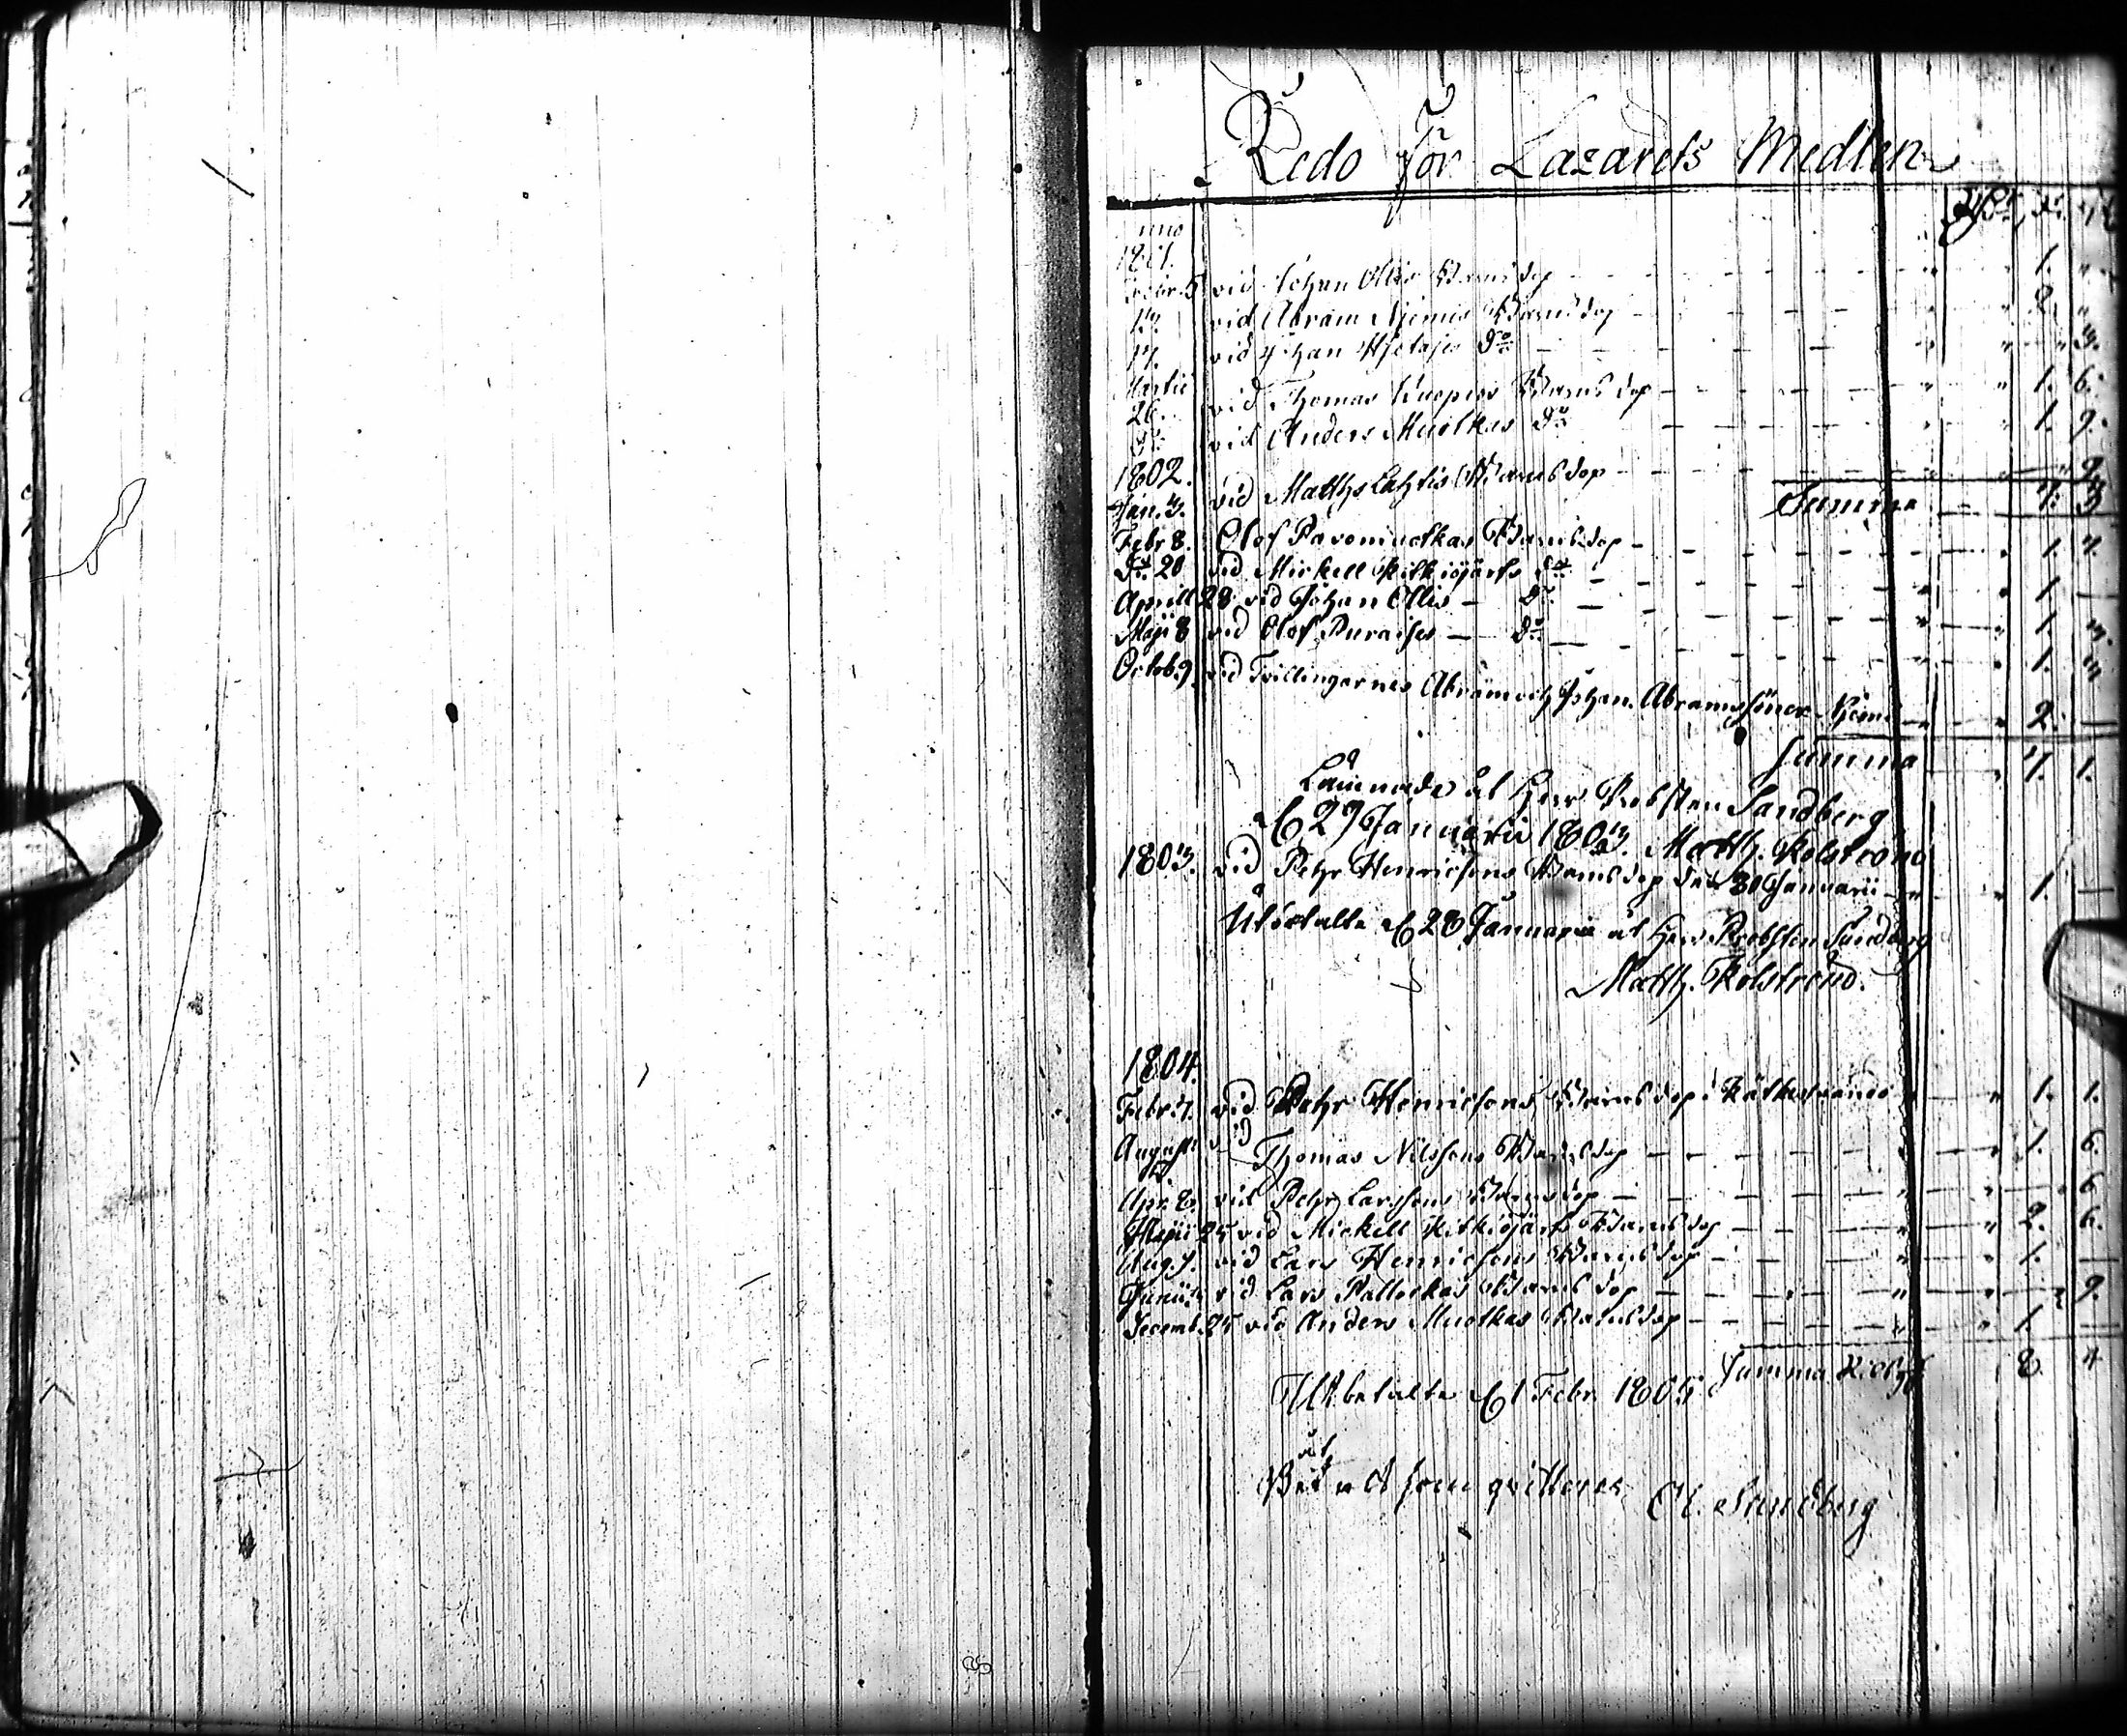 Redo För Lazarets Medlen
1801.
Febr. 5 vid Johan Ollis Barns dop - - - 1. "
13. vid Abram Niemis Barns dop - - - 2. "
17. vid Johan do - - - " 3.
Martii vid Thomas Barns dop - - - 1. 6.
26. vid Anders Muotkas do - - - 1. 9.
1802.
Jan. 3. vid Matths Lahtis Barns dop - - - 9.
Summa - 7. 3
Febr 8. Olof Pavomuotkas Barns dop - - - 1. 4.
do 20 vid Mickell Kitkiöjärfs do - - - 1. —
Aprill 28 vid Johan Ollis — do - - - 1. 3.
Maji 8 vid Olof — do - - - 1. 3
Octob. 9. vid Tvillingarnes Abram och Johan Abramssöner Niemi — 2. —
Summa 7. 1.
Lämnade åt Herr Probsten Sandberg
d 29 Januarii 1803. Matth. Kolström
1803. vid Pehr Henricsons Barns dop den 30 Januarii — 1. —
Utbetalte d 28 Januarii åt Herr Probsten Sandberg
Matth. Kolström.
1804.
Febr. 7. vid Pehr Henricsons Barns dop i Kätkesuando " 1. 1.
Augusti vid Thomas Nilssons Barns dop — — — 1. 6.
Apr. 8. vid Pehr Larssons Barns dop — — — 6
Maji 25 vid Mickell Kitkiöjärfs Barns dop — — — 2. 6.
Aug. 7. vid Lars Henricsons Barns dop — — — 1. —
Junii vid Lars Barns dop — — — 9.
Decemb. 25 vid Anders Muotkas Barns dop — — — 1. —
Summa 8 4
Utbetalte d 1 Febr. 1805
åt
som qvitteras Sandberg